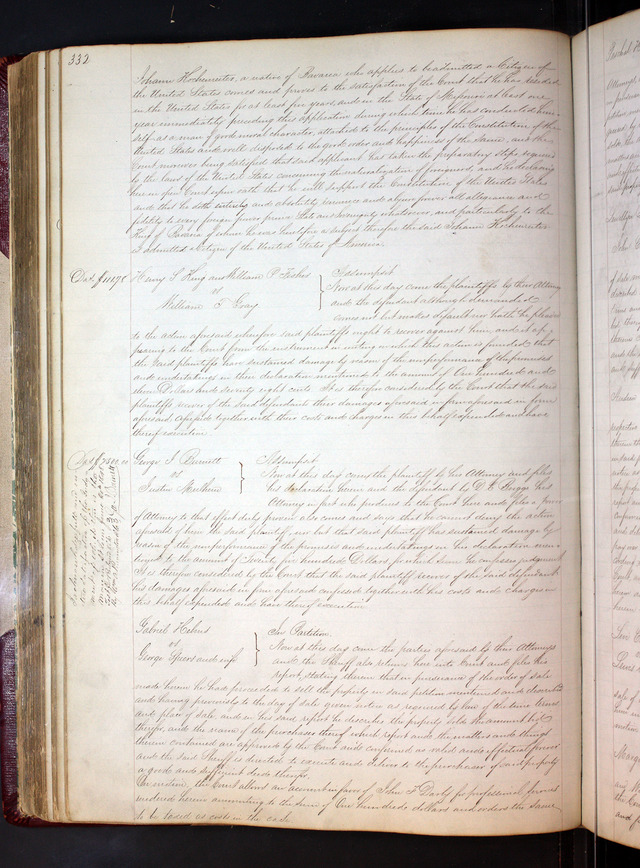 332
Johann Hochmeister, a native of Bavaria who applies to be admitted a Citizen of
the United States comes and proves to the satisfaction of the Court that he has resided
in the United States for at least five years, and in the State of Missouri at least one
year immediately preceding this application during which time he has conducted him-
self as a man of good moral character, attached to the principles of the Constitution of the
United States and well disposed to the good order and happiness of the same, and the
Court moreover being satisfied that said applicant has taken the preparatory steps required
by the laws of the United States concerning the naturalization of foreigners, and he declaring
here in open Court upon oath that he will support the Constitution of the United States
and that he doth entirely and absolutely renounce and abjure forever all allegiance and
fidelity to every foreign power prince State and Sovereignty whatsoever, and particularly to the
King of Bavaria of whom he was heretofore a subject therefore the said Johann Hochmeister
is admitted a Citizen of the United States of America.
Henry S King and William P Fisher } Assumpsit
vs Now at this day come the plaintiffs by their Attorney
William F Gray and the defendant although demanded
comes not but makes default nor hath he pleaded
to the action aforesaid wherefore said plaintiffs ought to recover against him, and it ap-
pearing to the Court from the instrument in writing on which this action is founded that
the said plaintiffs have sustained damage by reason of the nonperformance of the promises
and undertakings in their declaration mentioned to the amount of One hundred and
Dollars and seventy eight cents It is therefore considered by the Court that the said
plaintiffs recover of the said defendant their damages aforesaid in form aforesaid
together with their costs and charges in this behalf expended and have
thereof execution
George I Barnett } Assumpsit
vs Now at this day comes the plaintiff by his Attorney and files
his declaration herein and the defendant by D C Briggs his
Attorney in fact who produces to the Court here and files a power
of Attorney to that effect duly proven also comes and says that he cannot deny the action
aforesaid of him the said plaintiff, nor but that said plaintiff has sustained damage by
reason of the nonperformance of the promises and undertakings in the declaration men-
tioned to the amount of Twenty five hundred Dollars for which sum he confesses judgment
It is therefore considered by the Court that the said plaintiff recover of the said defendant
his damages aforesaid in form aforesaid confessed together with his costs and charges in
this behalf expended and have thereof execution
Gabriel Helms } In Partition.
vs Now at this day come the parties aforesaid by their Attorneys
George Speers and wife and the Sheriff also returns here into Court and files his
report, stating therein that in pursuance of the order of sale
made herein he had proceeded to sell the property in said petition mentioned and described
and having previously to the day of sale given notice as required by law of the time terms
and place of sale, and in his said report he describes the property sold the amount bid
therefor, and the name of the purchasers thereof which report and the matters and things
therein contained are approved by the Court and confirmed as valid and effectual
and the said Sheriff is directed to execute and deliver to the purchasers of said property
a good and sufficient deed therefor.
On motion the Court allows an account in favor of John F Darby for professional services
rendered herein amounting to the sum of One hundred dollars and orders the same
to be taxed as costs in the case.